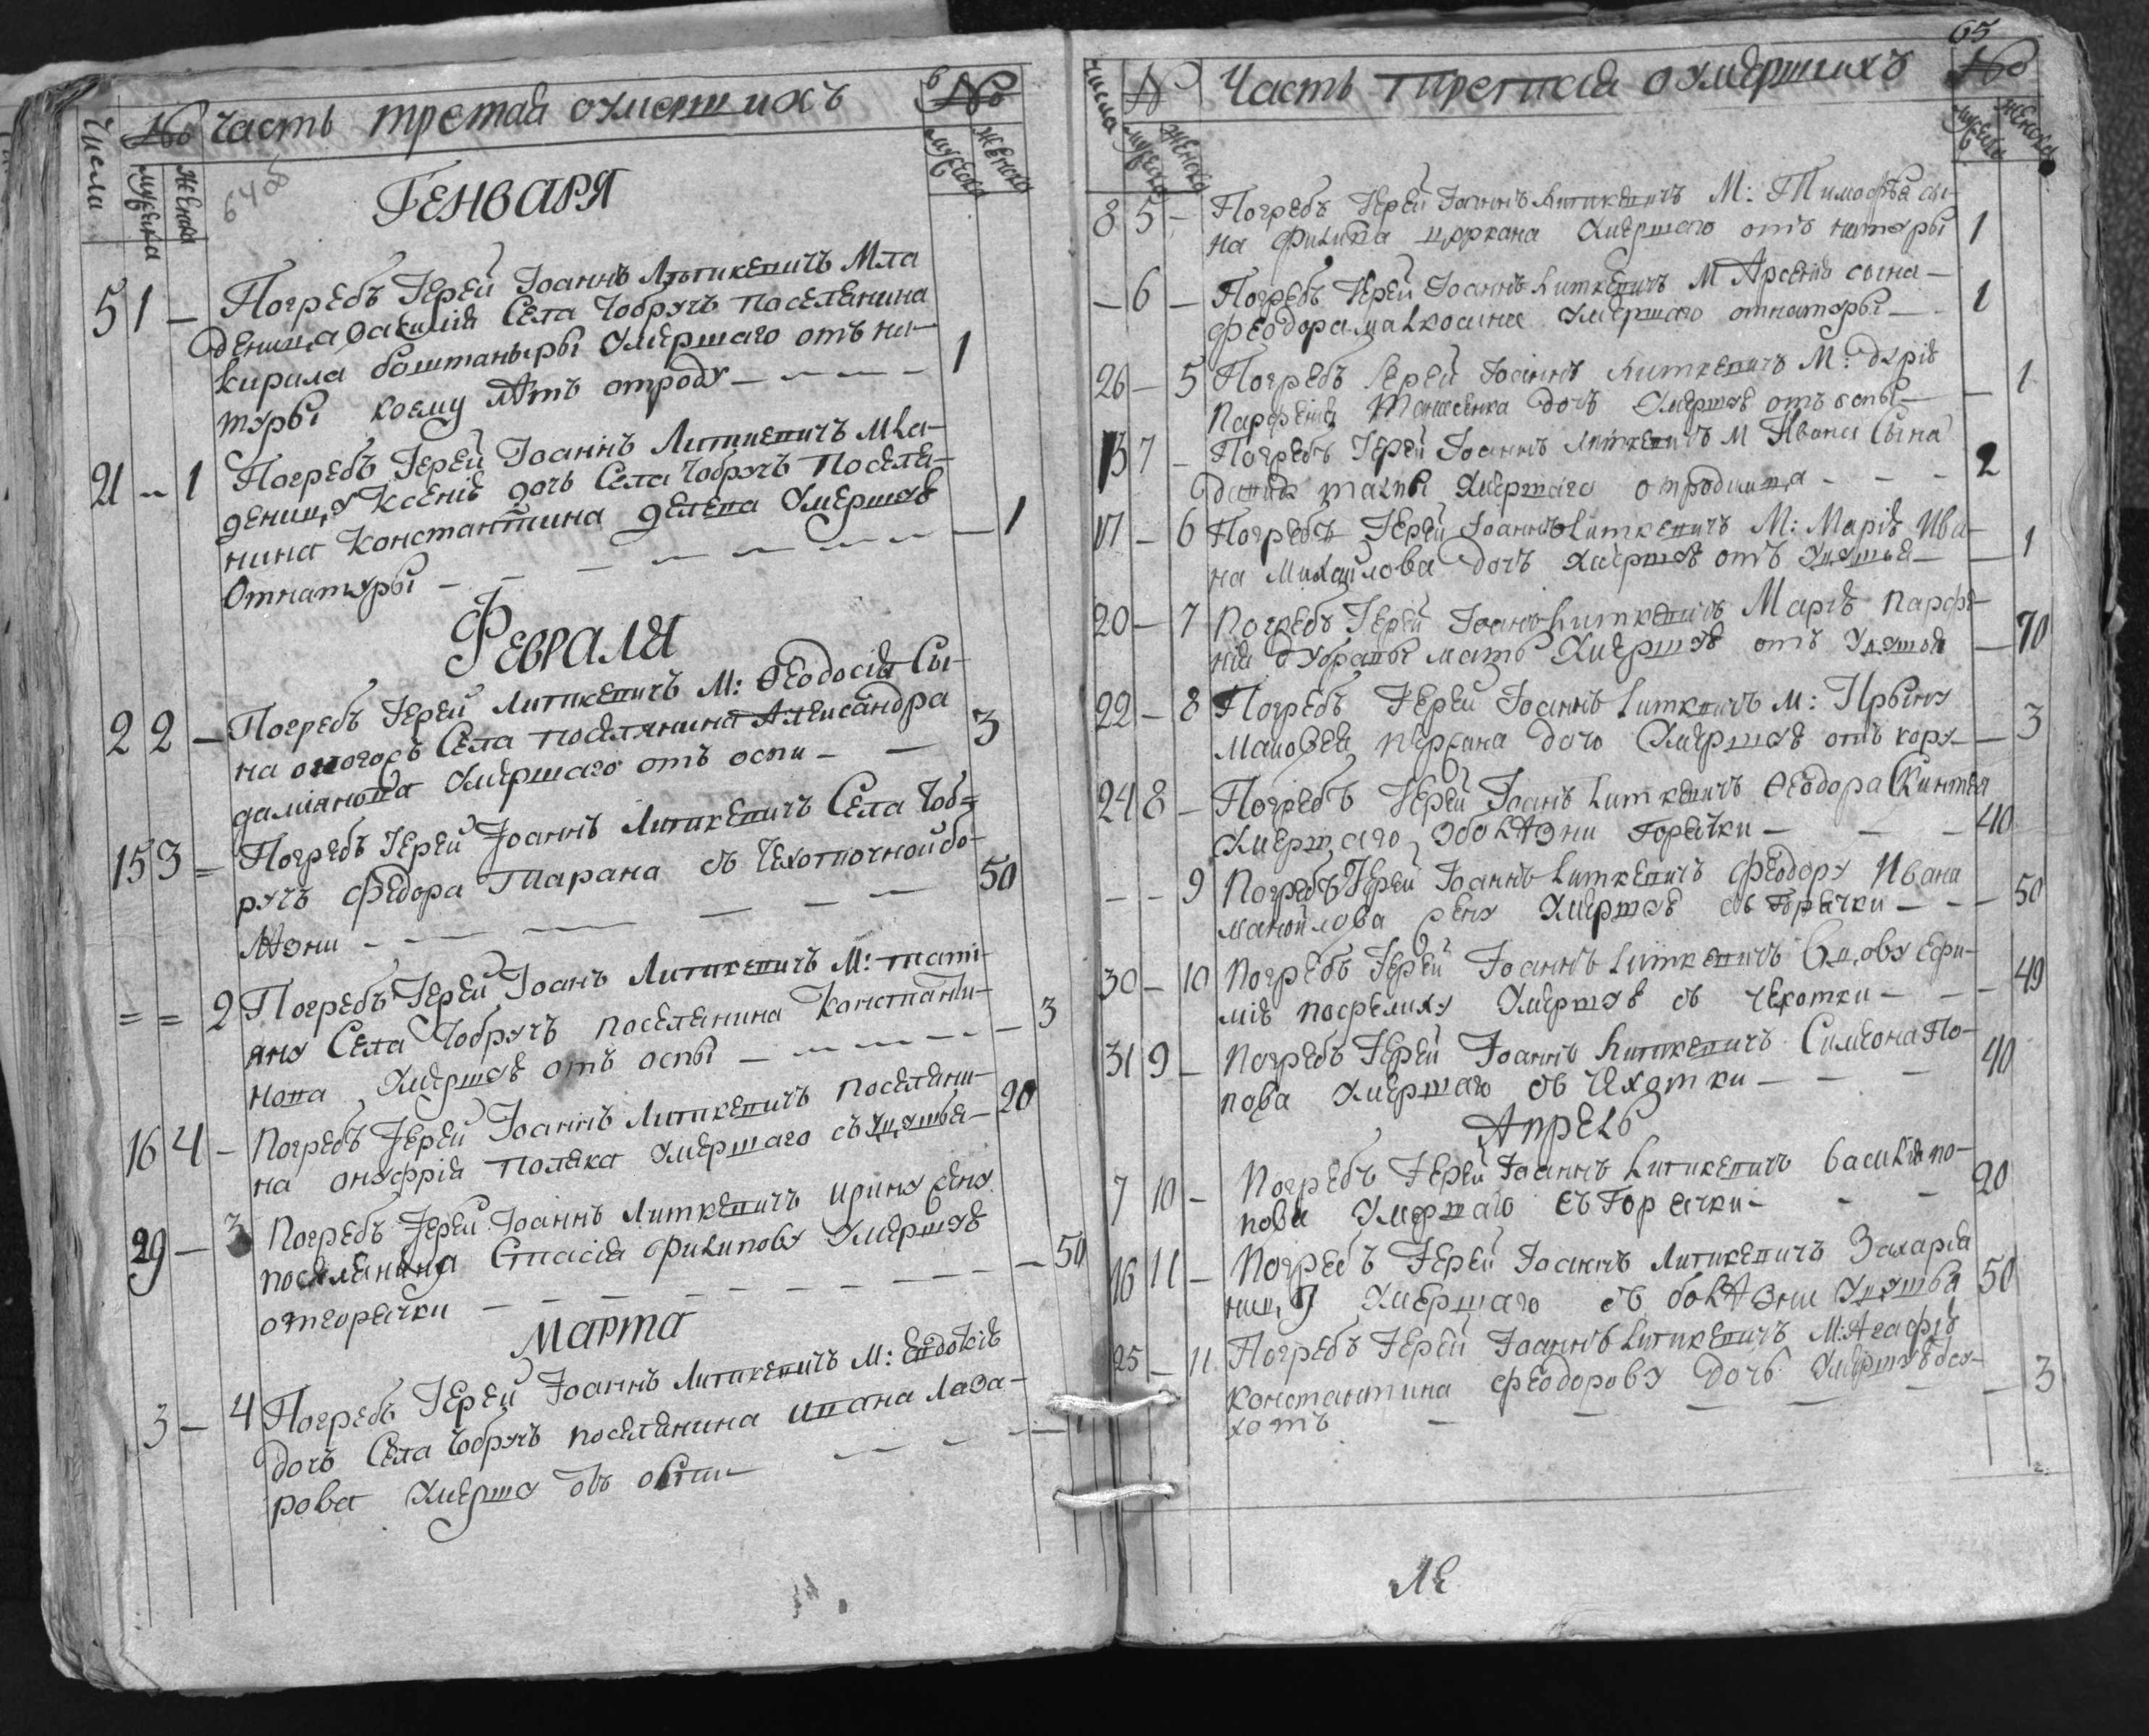 Числа № Часть третая оумершихъ №
мужеска женска мужеска женска
64 об
Генваря
5 1 – Погребъ Іерей Іоаннъ Литкевичъ Мла
денца василія Села Чобручъ поселянина
кирила боштаныры умершаго отъ на–
туры коему лѣтъ отроду – 1
21 – 1 Погребъ Іерей Іоаннъ Литкевичъ Мла–
деницу Ксенію дочь Села Чобручъ Поселя–
нина Константина делева умершую
Отнатуры – 1
Февраля
2 2 – Погребъ Іерей Литкевичъ М: Ѳеодосія Сы–
на Села поселянина Александра
даміянова умершаго отъ оспи – 3
15 3 = Погребъ Іерей Іоаннъ Литкевичъ Села Чоб=
ручъ Федора Тарана съ Чехоточной бо–
лѣзни – 50
= = 2 Погребъ Іерей Іоанъ Литкевичъ М: тати–
яну Села Чобручъ поселянина Константи–
нова умершую отъ оспы – 3
16 4 – Погребъ Іерей Іоаннъ Литкевичъ поселяни–
на онуфрія поляка умершаго съ удушья – 20
29 – 3 Погребъ Іерей Іоаннъ Литкевичъ ирину жену
поселянина Спасія филипову умершую
отгорячки – 50
Марта
3 – 4 Погребъ Іерей Іоаннъ Литкевичъ М: Евдокію
дочь Села Чобручъ поселянина ивана Лаза–
рова умершу отъ оспи –
65
Числа № Часть третия оумершихъ №
мужеска женска мужеска женска
8 5 – Погребъ Іерей Іоаннъ Литкевичъ М: Тимофѣя сы–
на филипа цуркана умершаго отъ натуры 1
– 6 – Погребъ Іерей Іоаннъ Литкевичъ М Арсенія сына –
феодора умершаго отнатуры – 1
26 – 5 Погребъ Іерей Іоаннъ Литкевичъ М: дарію
Парфенія дочь умершую отъ оспы – 1
13 7 – Погребъ Іерей Іоаннъ Литкевичъ М Ивана Сына
умершаго отродимца – – – 2
17 – 6 Погребъ Іерей Іоаннъ Литкевичъ М: Марію Ива–
на Михайлова дочь умершую отъ удушья – 1
20 – 7 Погребъ Іерей Іоаннъ Литкевичъ Марію Парфе–
нія дубравы мать умершую отъ удушья – 70
22 – 8 Погребъ Іерей Іоаннъ Литкевичъ М: Ирыну
Маковея дочь умершую отъ кору – 3
24 8 – Погребъ Іерей Іоанъ Литкевичъ Ѳеодора
умершаго зболѣзни горячки – – – 40
– – 9 Погребъ Іерей Іоаннъ Литкевичъ феодору Ивана
манойлова жену умершую съ горячки – – – 50
30 – 10 Погребъ Іерей Іоаннъ Литкевичъ Вдову Ефи–
мію умершую съ чехотки – – – 49
31 9 – Погребъ Іерей Іоаннъ Литкевичъ Симеона По–
пова умершаго съ чехотки – – – 40
Апрель
7 10 – Погребъ Іерей Іоаннъ Литкевичъ василія по–
пова умершаго съ горячки – – – 20
16 11 – Погребъ Іерей Іоаннъ Литкевичъ Захарія
умершаго съ болѣзни удушья 50
25 – 11 Погребъ Іерей Іоаннъ Литкевичъ М: Агафію
константина феодорову дочь умершую съ су–
хотъ – – – – – 3
ЛЕ